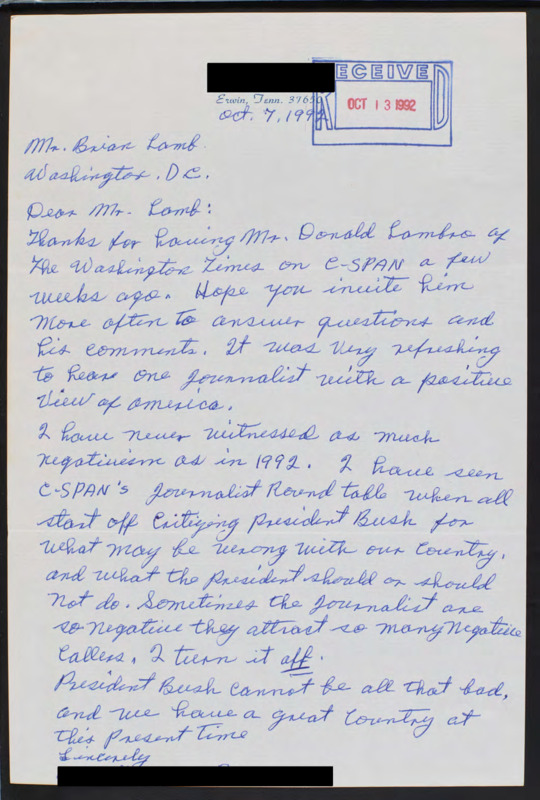 RECEIVED
OCT 13 1992
Erwin, Tenn. 37650
Oct. 7, 1992
Mr. Brian Lamb
Washington, D.C.
Dear Mr. Lamb:
Thanks for having Mr. Donald Lambro of
The Washington Times on C-SPAN a few
weeks ago. Hope you invite him
more often to answer questions and
his comments. It was very refreshing
to hear one journalist with a positive
view of america.
I have never witnessed as much
negativism as in 1992. I have seen
C-SPAN's Journalist Round table when all
start off Critizing President Bush for
what may be wrong with our Country,
and what the President should or should
not do. Sometimes the Journalist are
so negative they attrast so many Negative
Callers. I turn it off.
President Bush cannot be all that bad,
and we have a great Country at
this Present time
Sincerely